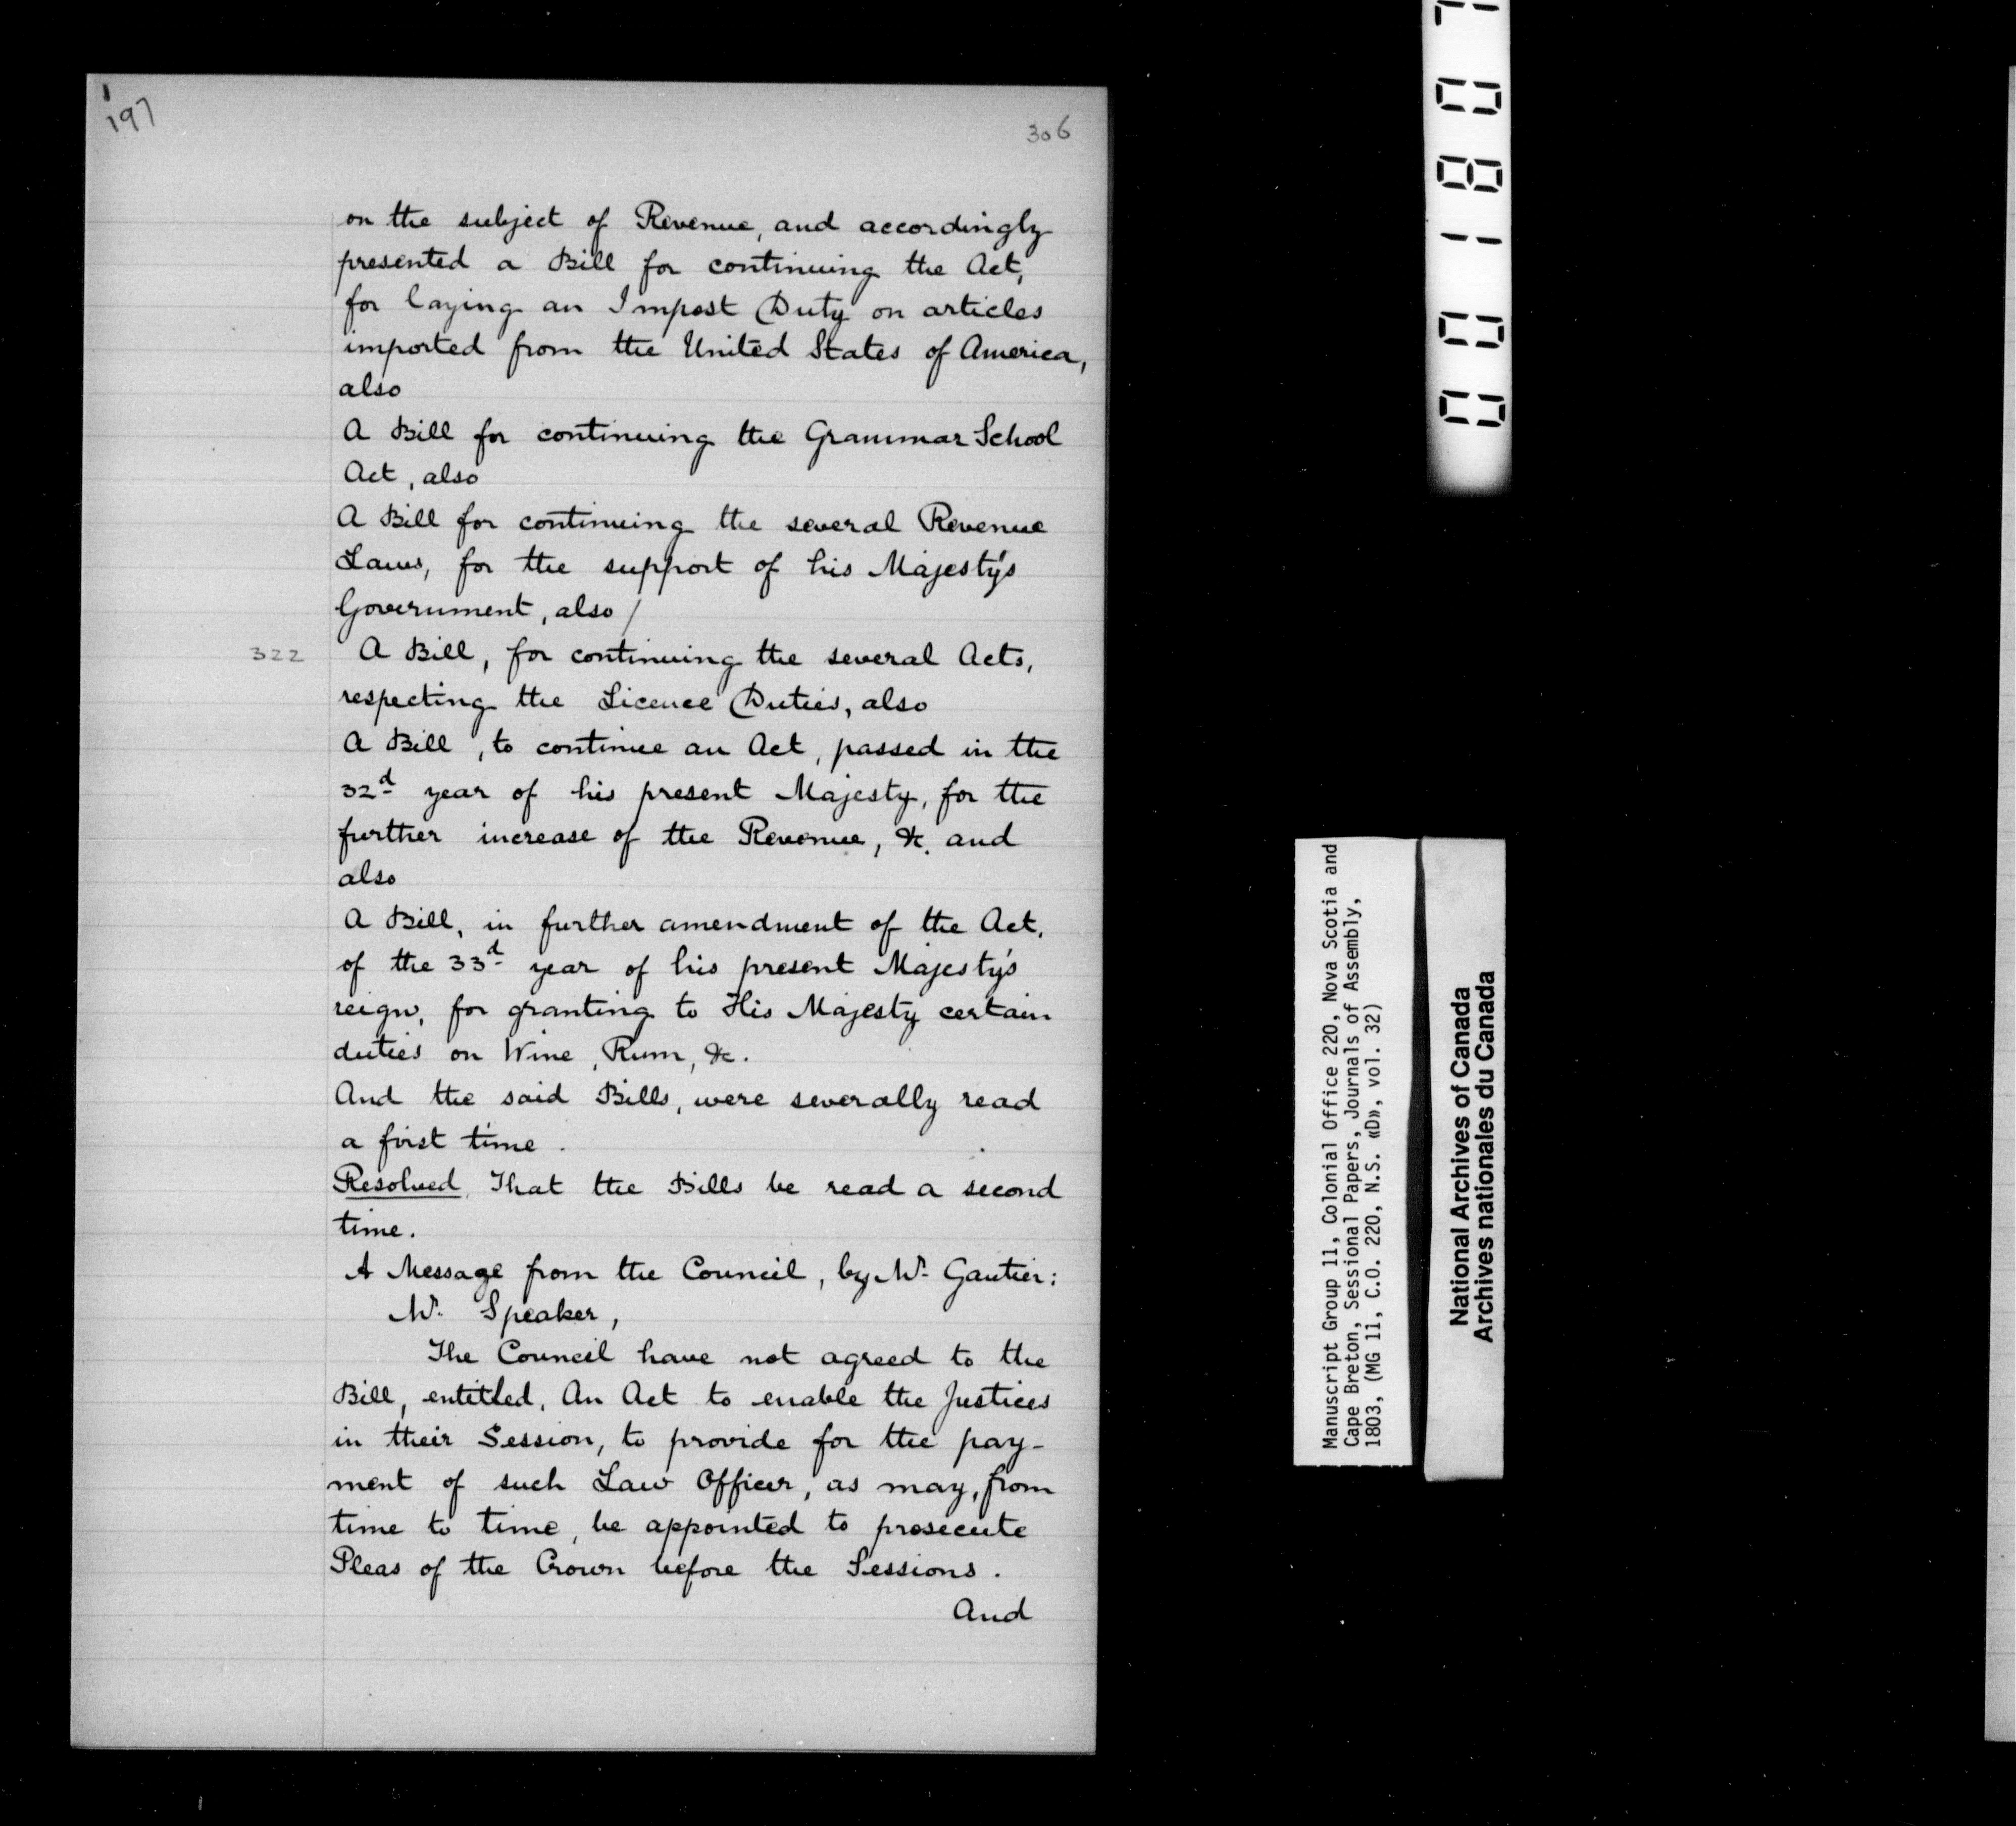 197
306
on the subject of Revenue, and accordingly
presented a Bill for continuing the Act,
for laying an Impost Duty on articles
imported from the United States of America,
also
A Bill for continuing the Grammar School
Act, also
A Bill for continuing the several Revenue
Laws, for the support of his Majesty's
Government, also /
322
A Bill, for continuing the several Acts,
respecting the Licence Duties, also
A Bill, to continue an Act, passed in the
32d year of his present Majesty, for the
further increase of the Revenue, &c. and
also
A Bill, in further amendment of the Act,
of the 33d year of his present Majesty's
reign, for granting to His Majesty certain
duties on Wine, Rum, &c.
And the said Bills, were severally read
a first time.
Resolved, That the Bills be read a second
time.
A Message from the Council, by Mr. Gautier:
Mr. Speaker,
The Council have not agreed to the
Bill, entitled, An Act to enable the Justices
in their Session, to provide for the pay-
ment of such Law Officer, as may, from
time to time, be appointed to prosecute
Pleas of the Crown before the Sessions.
And
Manuscript Group 11, Colonial Office 220, Nova Scotia and
Cape Breton, Sessional Papers, Journals of Assembly,
1803, (MG 11, C.O. 220, N.S. «D», vol. 32)
National Archives of Canada
Archives nationales du Canada